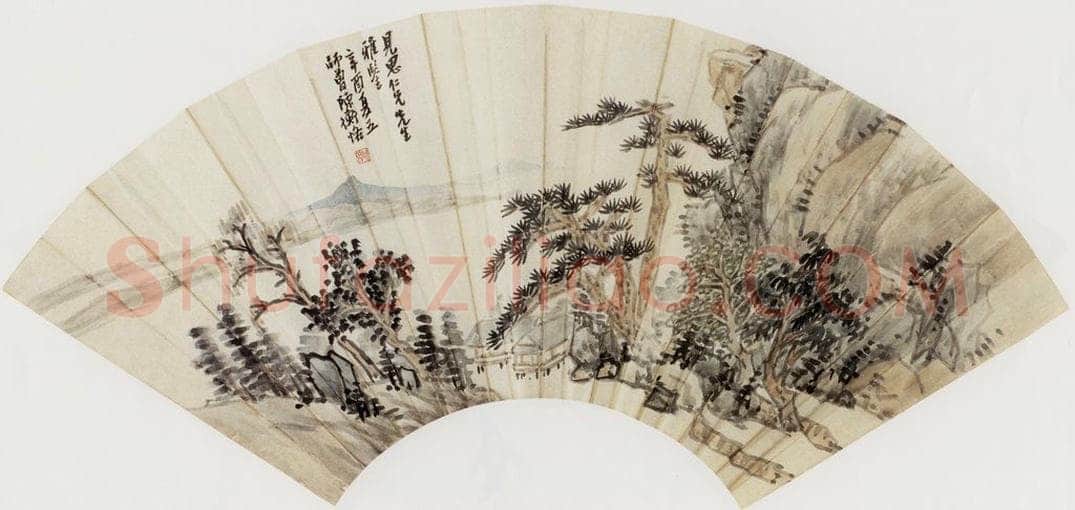 見思仁兄先生
雅鑒
辛酉夏五
師曾陳衡恪
Shufaziliao.COM